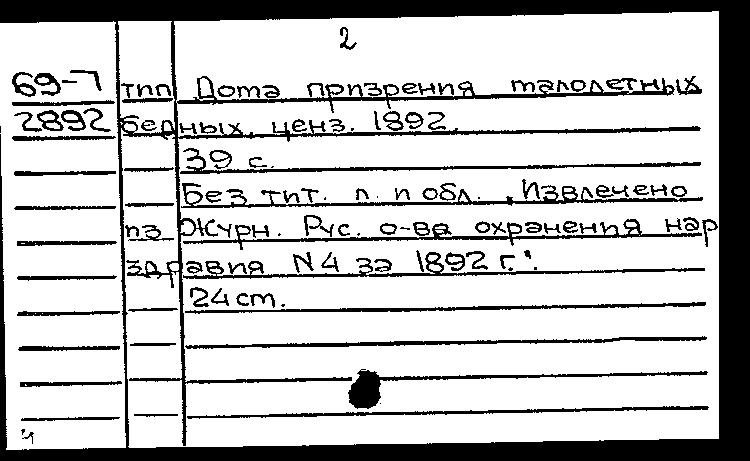 2
69-7 тип Дома призрения малолетных
2892 бедных, ценз. 1892.
39 с.
Без тит. л. и обл. „Извлечено
из Журн. Рус. о-ва охранения нар
здравия N 4 за 1892 г.".
24 cm.
ч